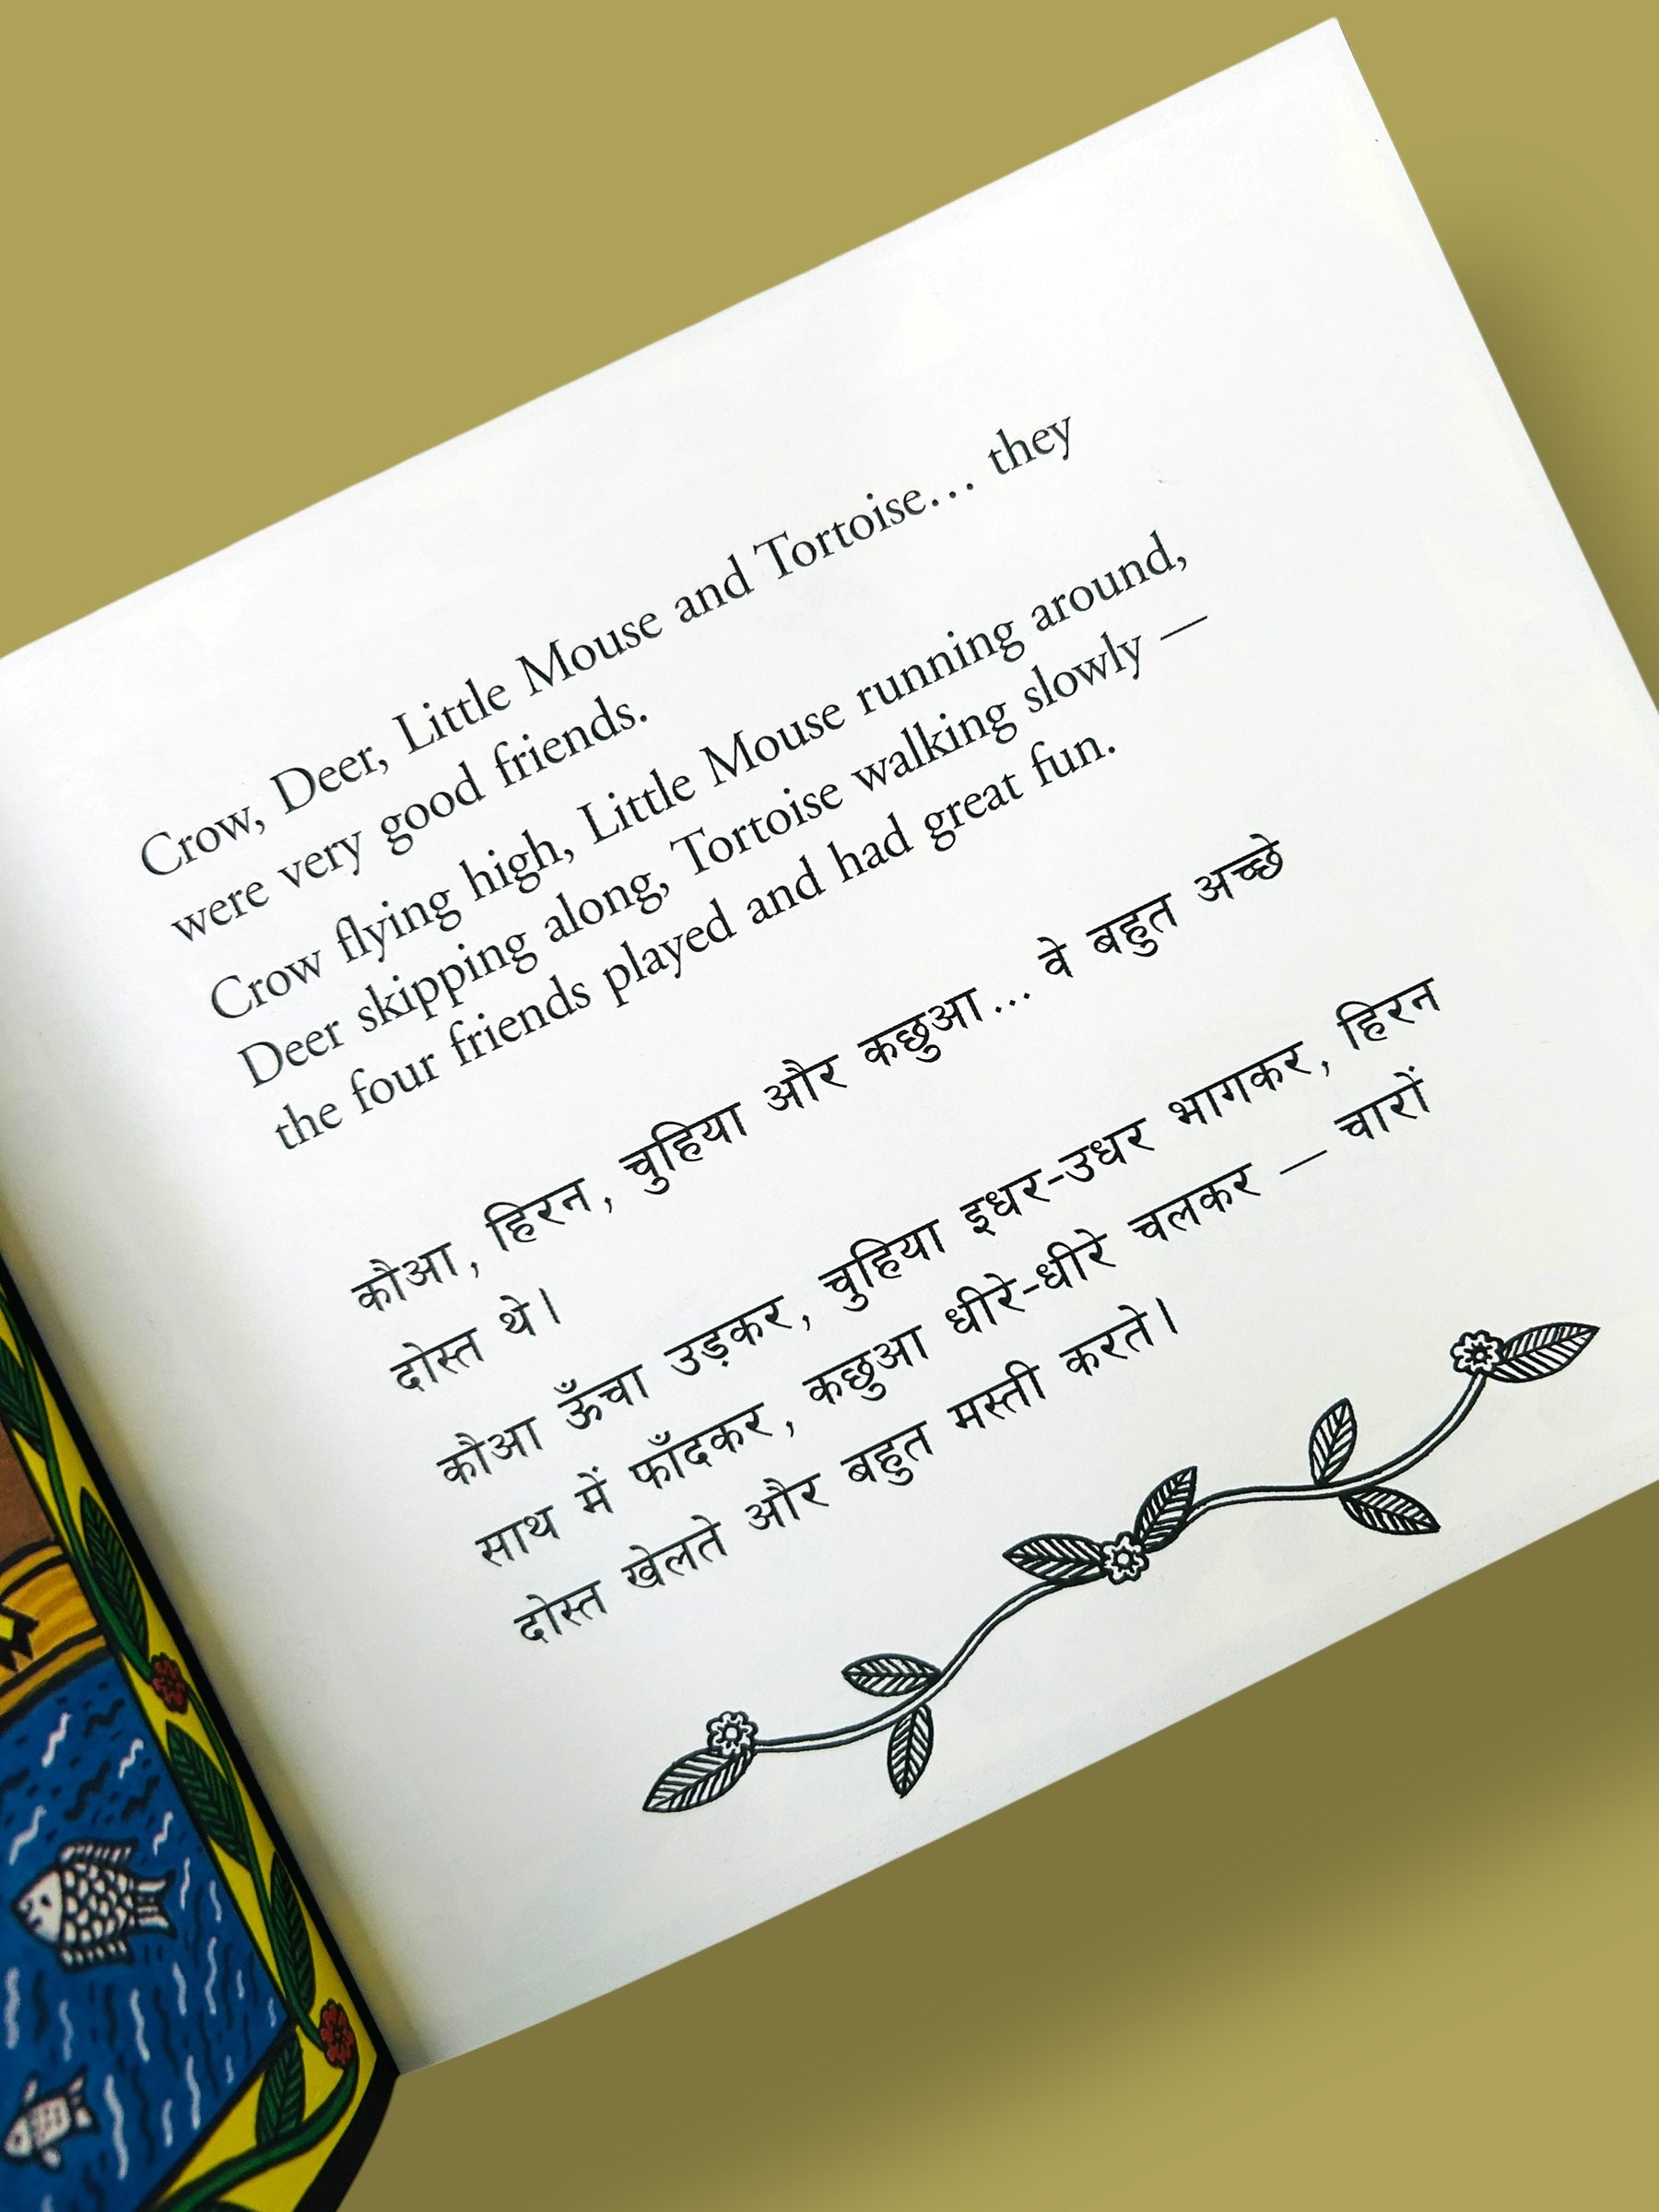 Crow, Deer, Little Mouse and Tortoise... they
were very good friends.
Crow flying high, Little Mouse running around,
Deer skipping along, Tortoise walking slowly —
the four friends played and had great fun.
कौआ, हिरन, चुहिया और कछुआ... वे बहुत अच्छे
दोस्त थे।
कौआ ऊँचा उड़कर, चुहिया इधर-उधर भागकर, हिरन
साथ में फाँदकर, कछुआ धीरे-धीरे चलकर — चारों
दोस्त खेलते और बहुत मस्ती करते।